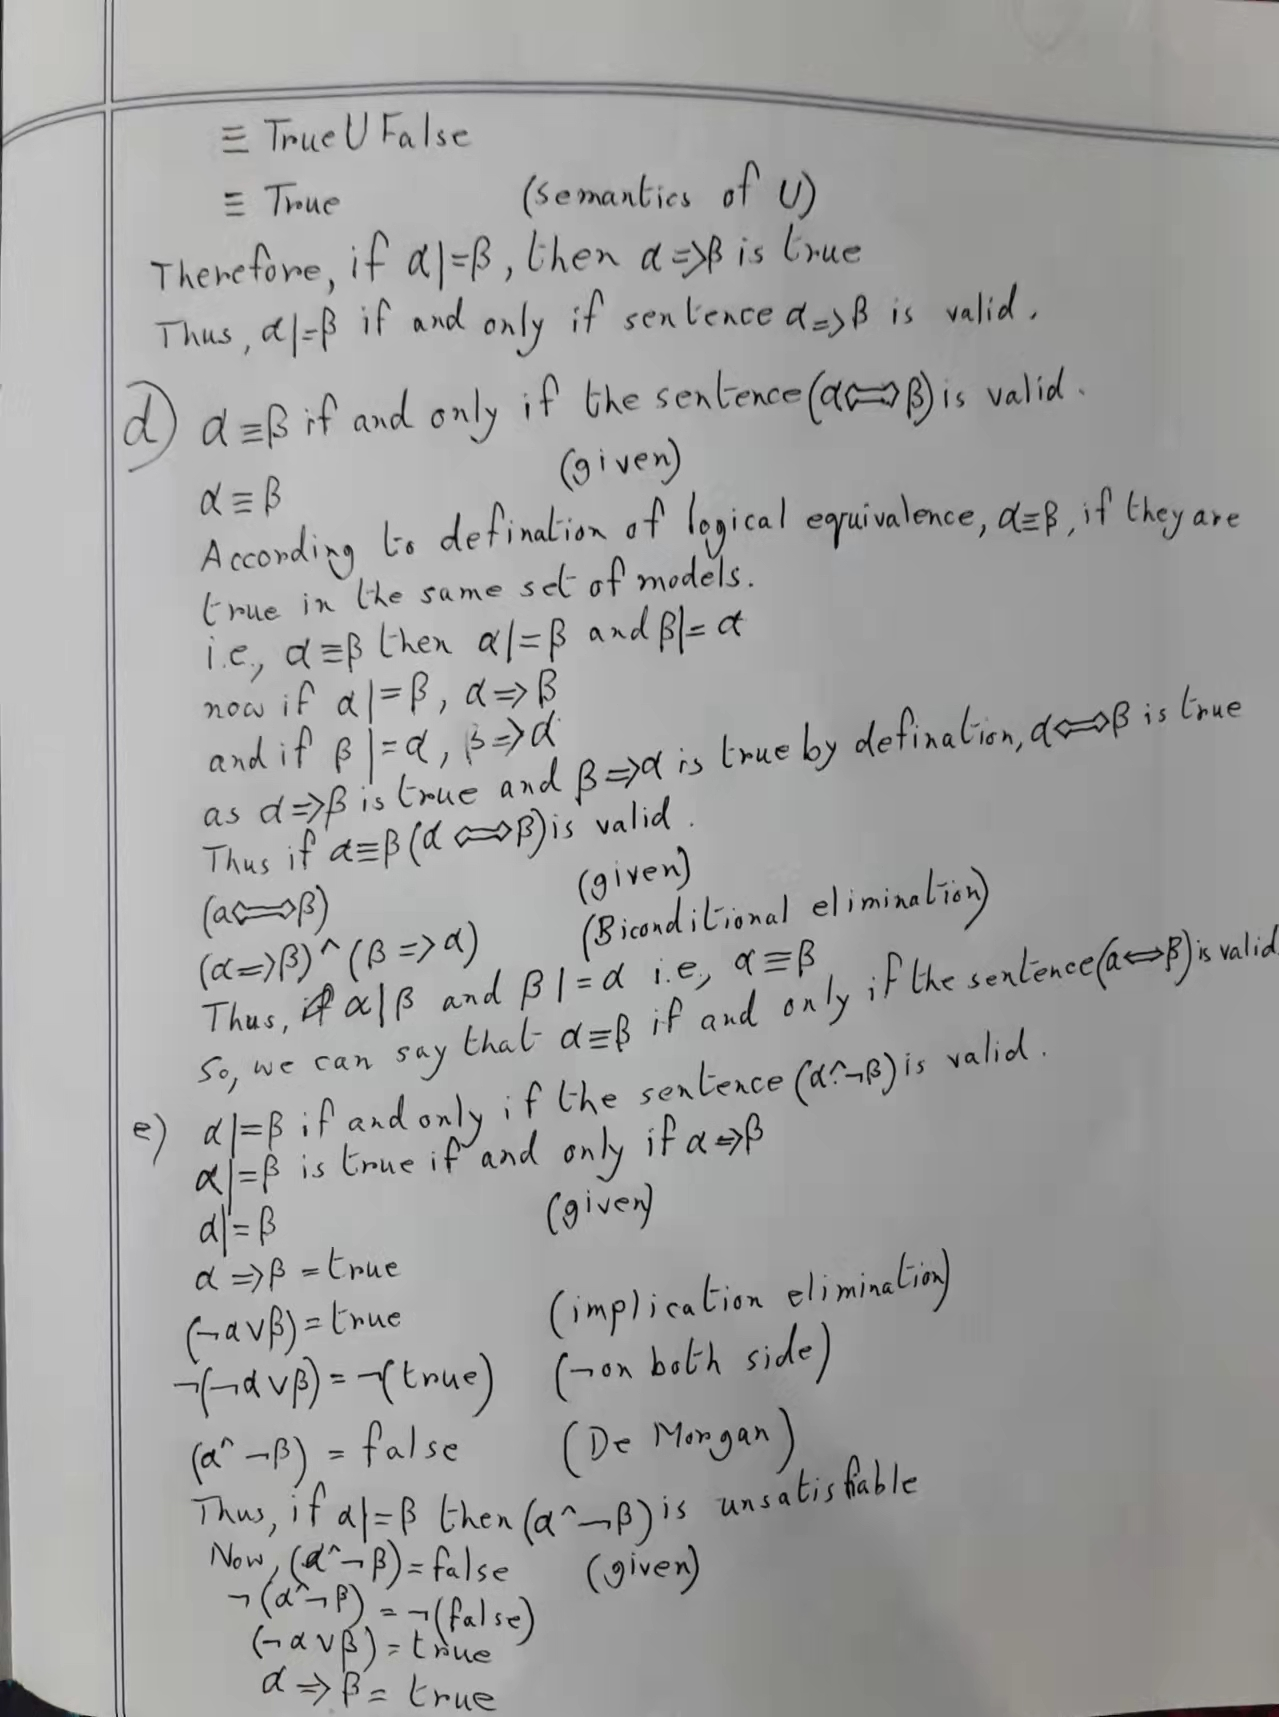 ≡ True U False
≡ True (semantics of U)
Therefore, if α|=β, then α=>β is true
Thus, α|=β if and only if sentence α=>β is valid.
d) α≡β if and only if the sentence (α<=>β) is valid.
α≡β (given)
According to defination of logical equivalence, α≡β, if they are
true in the same set of models.
i.e., α≡β then α|=β and β|=α
now if α|=β, α=>β
and if β|=α, β=>α
as α=>β is true and β=>α is true by defination, α<=>β is true
Thus if α≡β (α<=>β) is valid.
(a<=>β) (given)
(α=>β)^(β=>α) (Biconditional elimination)
Thus, if α|β and β|=α i.e., α≡β
So, we can say that α≡β if and only if the sentence (a<=>β) is valid
e) α|=β if and only if the sentence (α^¬β) is valid.
α|=β is true if and only if α=>β
α|=β (given)
α=>β = true
(¬a∨β) = true (implication elimination)
¬(¬α∨β) = ¬(true) (¬on both side)
(α^¬β) = false (De Morgan)
Thus, if α|=β then (α^¬β) is unsatisfiable
Now, (α^¬β) = false (given)
¬(α^¬β) = ¬(false)
(¬α∨β) = true
α=>β = true